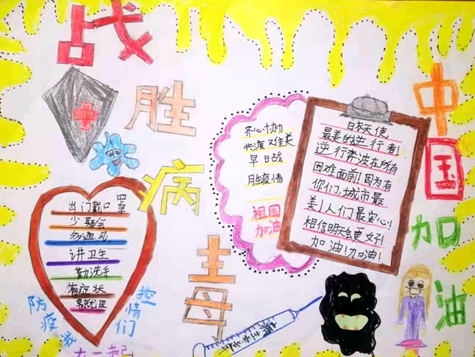 战
胜
病
毒
中
国
加
油
齐心协力
共渡难关
早日战
胜疫情
祖国
加油
白衣天使
最美的逆行者!
逆行奔波在所有
困难面前!因为有
你们,城市最
美!人们最安心!
相信明天会更好!
加油!加油!
出门戴口罩
少聚会
勤通风
讲卫生
勤洗手
有症状
防疫
控情
们
在一起